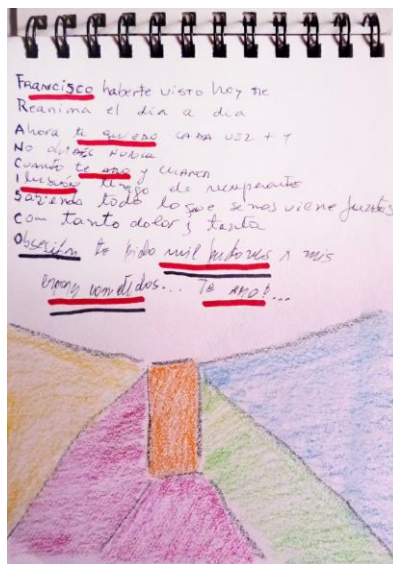 FRANCISCO haberte visto hoy me
Reanima el dia a dia
Ahora te quiero CADA VEZ + Y
NO olvides NUNCA
CUANTO te AMO y CUANTA
Ilusión tengo de recuperarte
Sabiendo todo lo que se nos viene juntos
Con tanto dolor y tanta
Obsesión te pido mil perdones x mis
errores cometidos... Te AMO!...